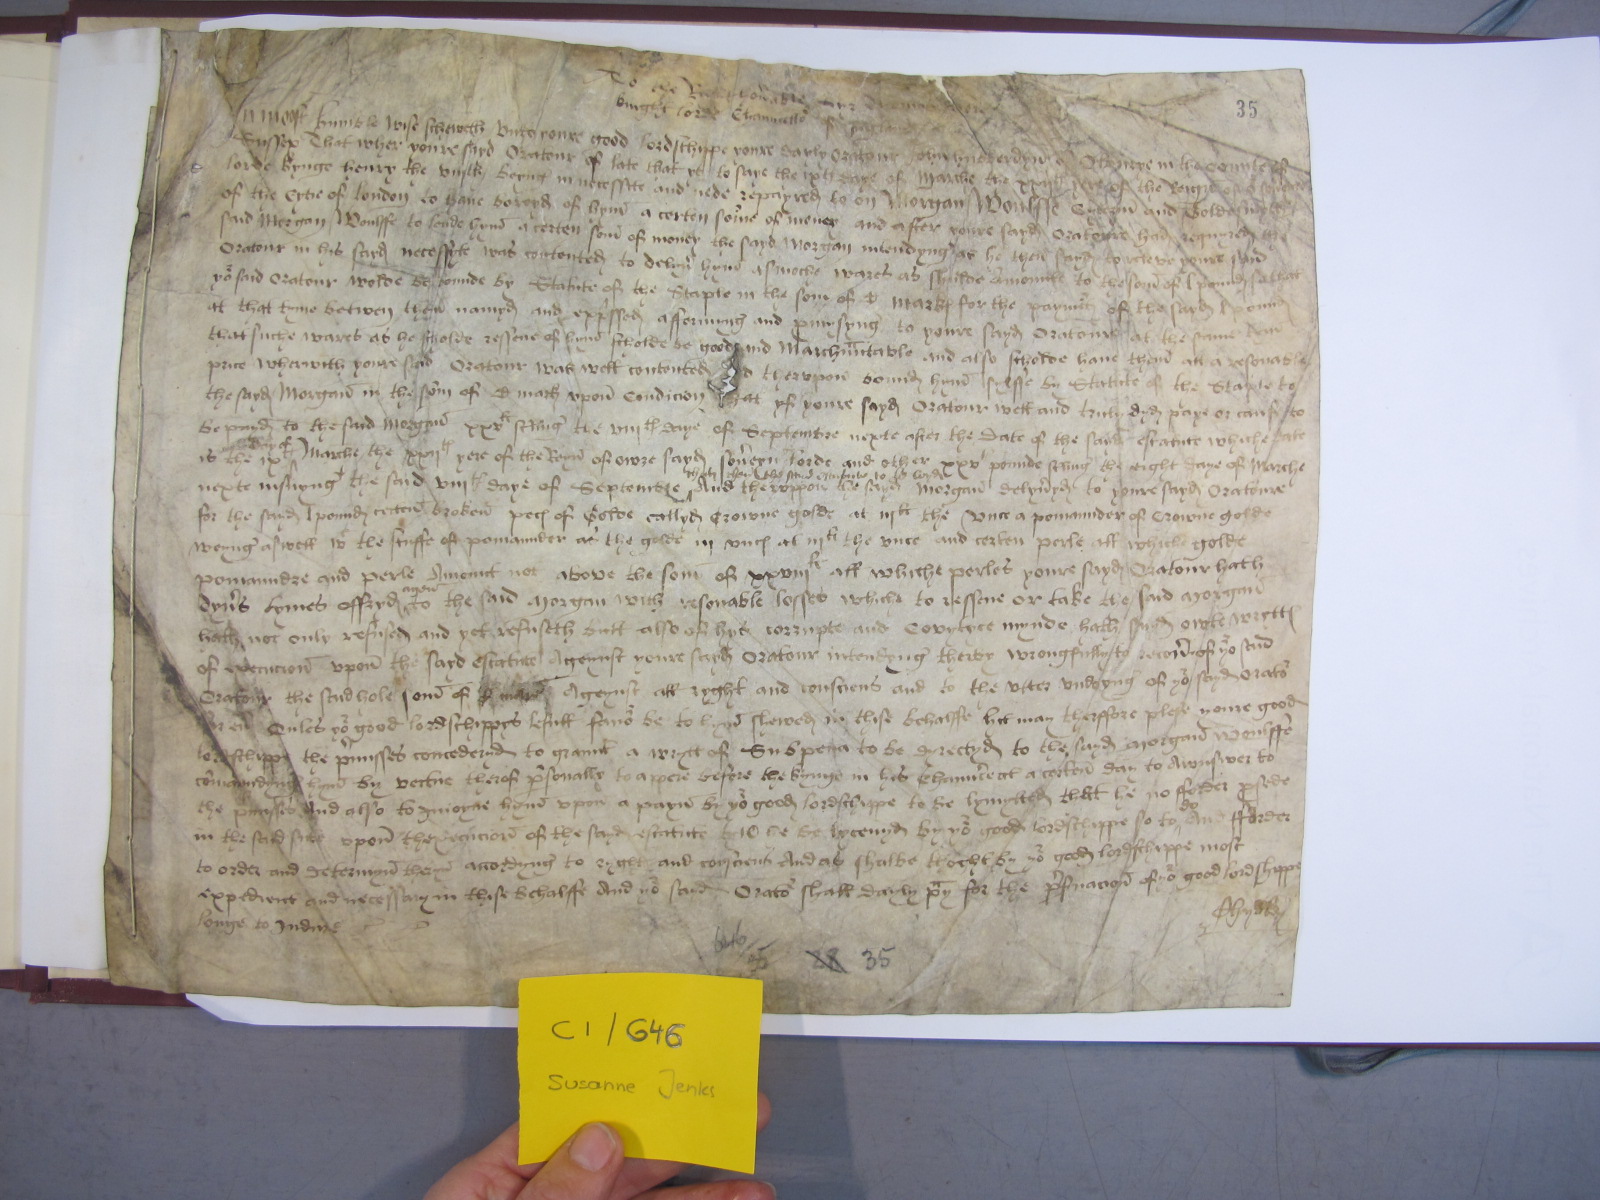 35
To the Right honorable
knyght lorde Chaunceller of
In most humble wise scheweth unto youre good lordschyppe youre dayly Oratour John of in the Countie of
Sussex That wher youre sayd Oratour of late that ys to saye the ixth daye of Marche the yere of the Reigne of
lorde kynge henry the viijth beyng in necessite and nede repayred to on Morgan Woulffe Cytezyn and Goldesmythe
of the Cytie of london to have boroyd of hym a certen some of money and after youre sayd Oratoure had requyred the
said Morgan Woulffe to lende hym a certen som of money the sayd Morgan intendyng as he then sayd to releve youre said
Oratour in his sayd necessyte was contented to delyver hym asmoche wares as shulde amounte to the som of l pound so that
yor said Oratour wolde be bounde by Statute of the Staple in the som of C markes for the payment of the sayd l pound
at that tyme betwen them namyd and expressed affermyng and promysyng to youre sayd Oratoure at the same tyme
that suche wares as he scholde resseve of hym scholde be good and Marchantable and also scholde have them att a resonable
price wherwith youre said Oratour was well contented theruppon bound hym sylffe by Statute of the Staple to
the sayd Morgan in the som of C mark upon Condicion that yf youre sayd Oratour well and truly dyd paye or cause to
be payd to the said Morgan xxv li sterling the viijth daye of Septembre nexte after the date of the said estatute whiche date
is the ixth day of Marche the yere of the Reyn of owre sayd soveren lorde and other xxv pounde sterling the eight daye of Marche
nexte insuyng the said viijth daye of Septembre then the said estatute to be voyde And theruppon the sayd Morgan delyvered to youre sayd Oratoure
for the sayd l pound certen broken peces of Golde callyd Crowne golde at the Unce a pomaunder of Crowne golde
weyng aswell with the stuffe of pomaunder as the golde iij unces at the unce and certen perle all whiche golde
pomaundre and perle Amount not above the som of xxviij li all whiche perles youre sayd Oratour hath
dyvers tymes offryd agen to the said Morgan with resonable losses whiche to resseve or take the said Morgan
hath not only refused and yet refuseth butt also of hys corrupte and Covytyce mynde hath sued owte wrytte
of execucion upon the sayd estatute Ageynst youre sayd Oratour intendyng therby wrongfully to recover of yor said
Oratour the said hole som of C markes Ageynst all ryght and consciens and to the utter undoyng of yor sayd Orator
for ever Onles yor good lordschippes lefull favor be to hym shewed in this behalffe hit may therffore plese youre good
lordschippe the premisses concedered to graunt a wryt of Subpena to be dyrectyd to the sayd Morgan Woulffe
comaundyng hym by vertue therof personally to apere before the kynge in his Chauncere att a certen day to Awnswer to
the premisses And also to Iniorne hym upon a payn by yor good lordschippe to be lymytted that he no further procede
in the said sute upon the execucion of the sayd estatute tyll he be lycencyd by yor good lordschippe so to do And further
to order and determyn therin accordyng to ryght and consciens And as shalbe thoght by yor good lordschippe most
expedient and necessary in this behalffe And yor said Orator shall dayly pray for the preservacion of yor good lordshippe
longe to Indure
646
35
35
C1/646
Susanne Jenks